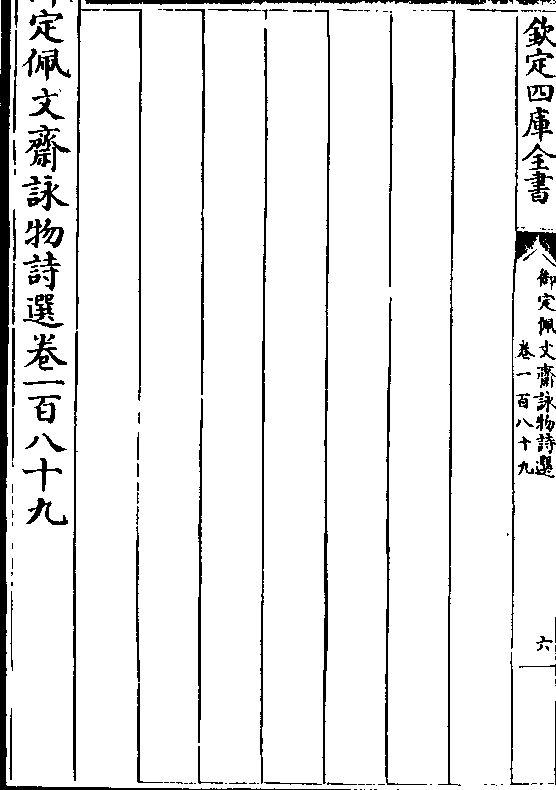 欽定四庫全書
御定佩文齋詠物詩選
卷一百八十九
六
御定佩文齋詠物詩選卷一百八十九